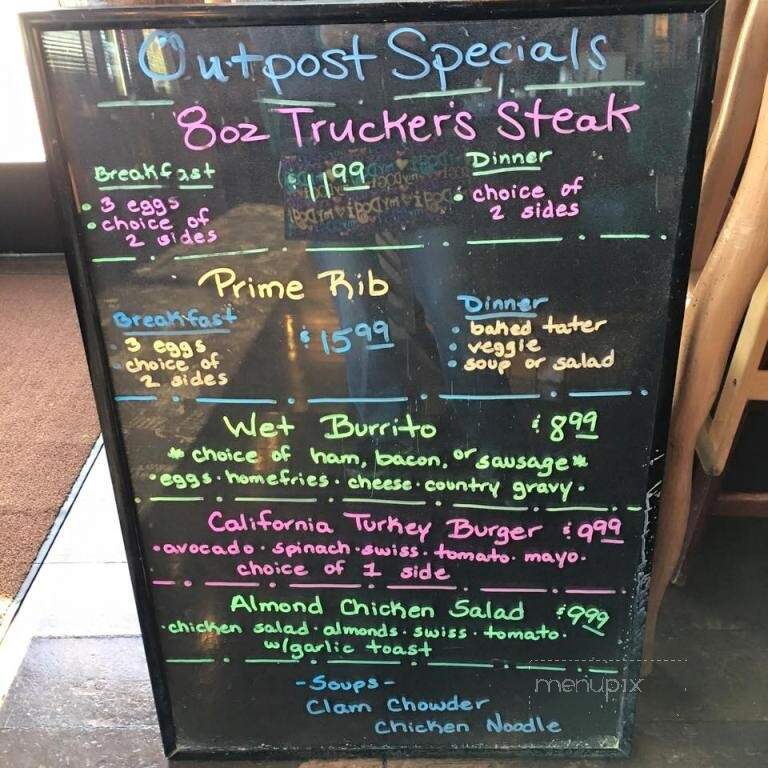 Outpost Specials
8oz Trucker's Steak
Breakfast
• 3 eggs
• choice of
2 sides
$11.99
Dinner
• choice of
2 sides
Prime Rib
Breakfast
• 3 eggs
• choice of
2 sides
$15.99
Dinner
• baked tater
• veggie
• soup or salad
Wet Burrito $8.99
* choice of ham, bacon, or sausage *
• eggs • homefries • cheese • country gravy •
California Turkey Burger $9.99
• avocado • spinach • swiss • tomato • mayo •
choice of 1 side
Almond Chicken Salad $9.99
• chicken salad • almonds • swiss • tomato •
w/garlic toast
- Soups -
Clam Chowder
Chicken Noodle
menupix